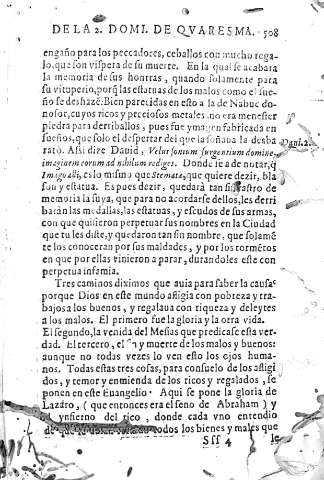 DE LA 2. DOMI. DE QVARESMA. 508
engaño para los peccadores, ceballos con mucho rega-
lo, que son vispera de su muerte. En la qual se acabara
la memoria de sus hontras, quando solamente para
su vituperio, porq̃ las estatuas de los malos como el sue-
ño se deshazẽ: Bien parecidas en esto a la de Nabuc do-
nosor, cuyos ricos y preciosos metales no era menester
piedra para derriballos, pues fue ymagen fabricada en
sueños, que solo el despertar del que la soñaua la desba
rato. Assi dize Dauid, Velut somium surgentium domine,
Dani. 2.
imaginem eorum ad nihilum rediges. Donde se a de notar, q̃
que quiere dezir, bla
son y estatua. Es pues dezir, quedarà tan sin rastro de
memoria la suya, que para no acordarse dellos, les derri
baràn las medallas, las estatuas, y escudos de sus armas,
con que quisieron perpetuar sus nombres en la Ciudad
que tu les diste, y quedaron tan sin nombre, que solamẽ
te los conoceran por sus maldades, y por los tormẽtos
en que por ellas vinieron a parar, durandoles este con
perpetua infamia.
Tres caminos diximos que auia para saber la causa
porque Dios en este mundo afligia con pobreza y tra-
bajos a los buenos, y regalaua con riqueza y deleytes
a los malos. El primero fue la gloria y la otra vida.
El segundo, la venida del Mesias que predicase esta ver-
dad. El tercero, el fin y muerte de los malos y buenos:
aunque no todas vezes lo ven esto los ojos huma-
nos. Todas estas tres cosas, para consuelo de los afligi-
dos, y temor y enmienda de los ricos y regalados, se
ponen en este Euangelio. Aqui se pone la gloria de
Lazaro, (que entonces era el seno de Abraham) y
ynfierno del rico, donde cada vno entendio
todos los bienes y males que
Sss 4 le